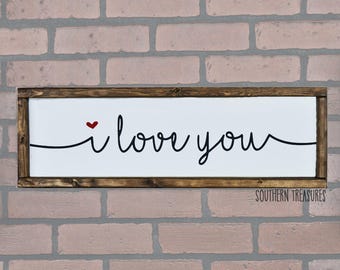 i love you
SOUTHERN TREASURES